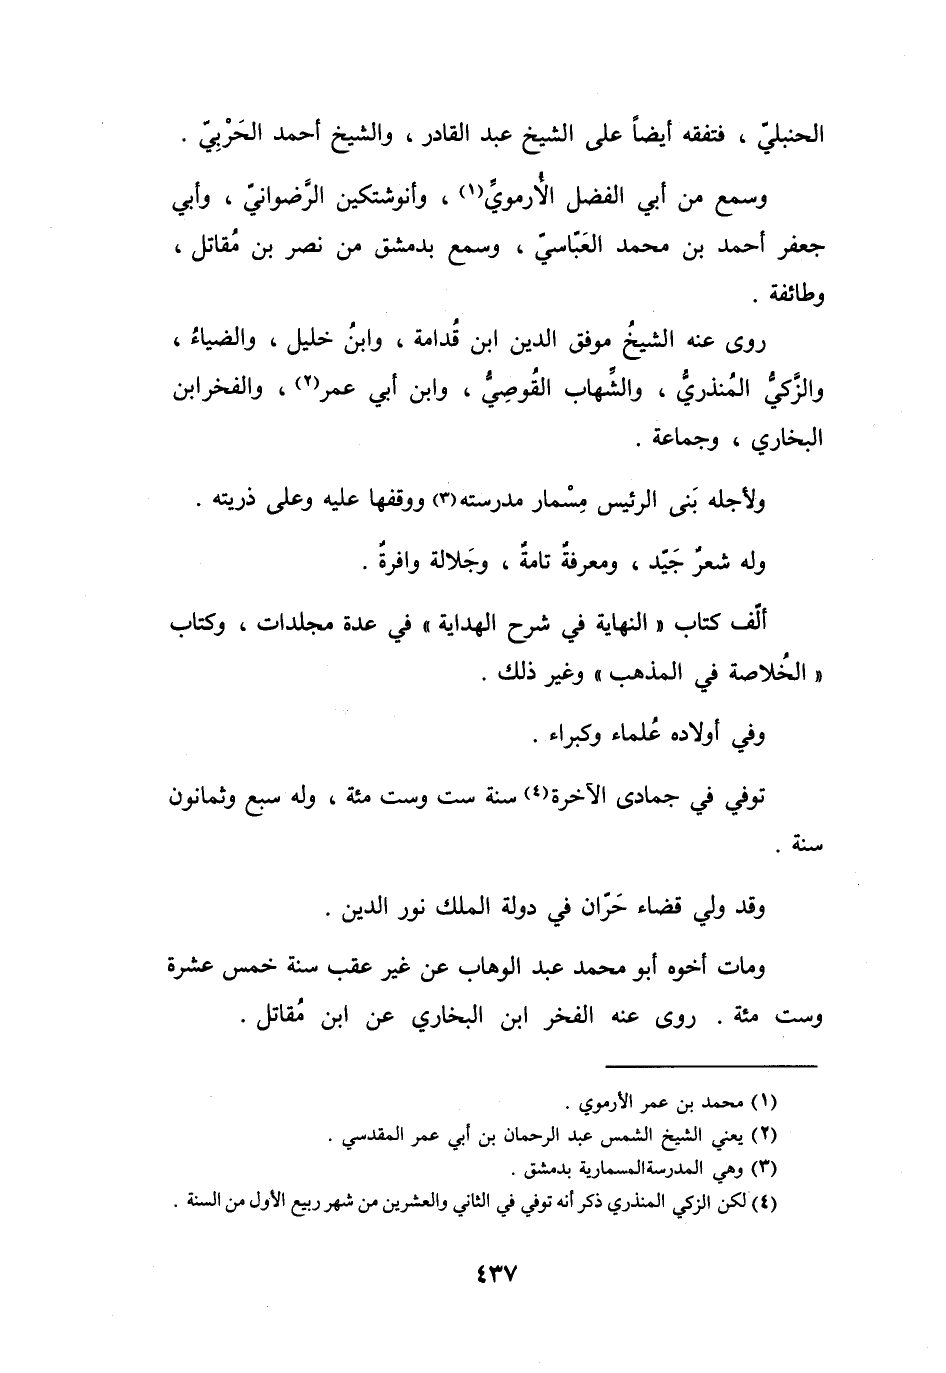 الحنبليّ ، فتفقه أيضاً على الشيخ عبد القادر ، والشيخ أحمد الحَرْبِيّ .
وسمع من أبي الفضل الأُرمويِّ(١) ، وأنوشتكين الرَّضوانيّ ، وأبي
جعفر أحمد بن محمد العَبّاسيّ ، وسمع بدمشق من نصر بن مُقاتل ،
وطائفة .
روى عنه الشيخُ موفق الدين ابن قُدامة ، وابنُ خليل ، والضياءُ ،
والزَّكيُّ المُنذريُّ ، والشِّهاب القُوصِيُّ ، وابن أبي عمر(٢) ، والفخرابن
البخاري ، وجماعة .
ولأجله بَنى الرئيس مِسْمار مدرسته(٣) ووقفها عليه وعلى ذريته .
وله شعرٌ جَيّد ، ومعرفةٌ تامةٌ ، وجَلالة وافرةٌ .
ألّف كتاب « النهاية في شرح الهداية » في عدة مجلدات ، وكتاب
« الخُلاصة في المذهب » وغير ذلك .
وفي أولاده عُلماء وكبراء .
توفي في جمادى الآخرة(٤) سنة ست وست مئة ، وله سبع وثمانون
سنة .
وقد ولي قضاء حَرّان في دولة الملك نور الدين .
ومات أخوه أبو محمد عبد الوهاب عن غير عقب سنة خمس عشرة
وست مئة . روى عنه الفخر ابن البخاري عن ابن مُقاتل .
(١) محمد بن عمر الأرموي .
(٢) يعني الشيخ الشمس عبد الرحمان بن أبي عمر المقدسي .
(٣) وهي المدرسةالمسمارية بدمشق .
(٤) لكن الزكي المنذري ذكر أنه توفي في الثاني والعشرين من شهر ربيع الأول من السنة .
٤٣٧